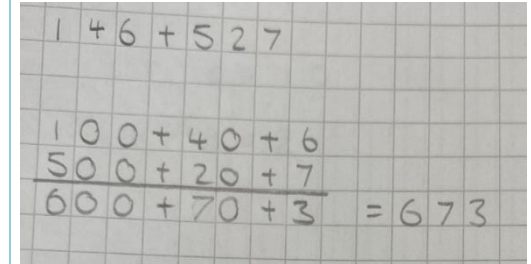 146+527
100+40+6
500+20+7
600+70+3 =673